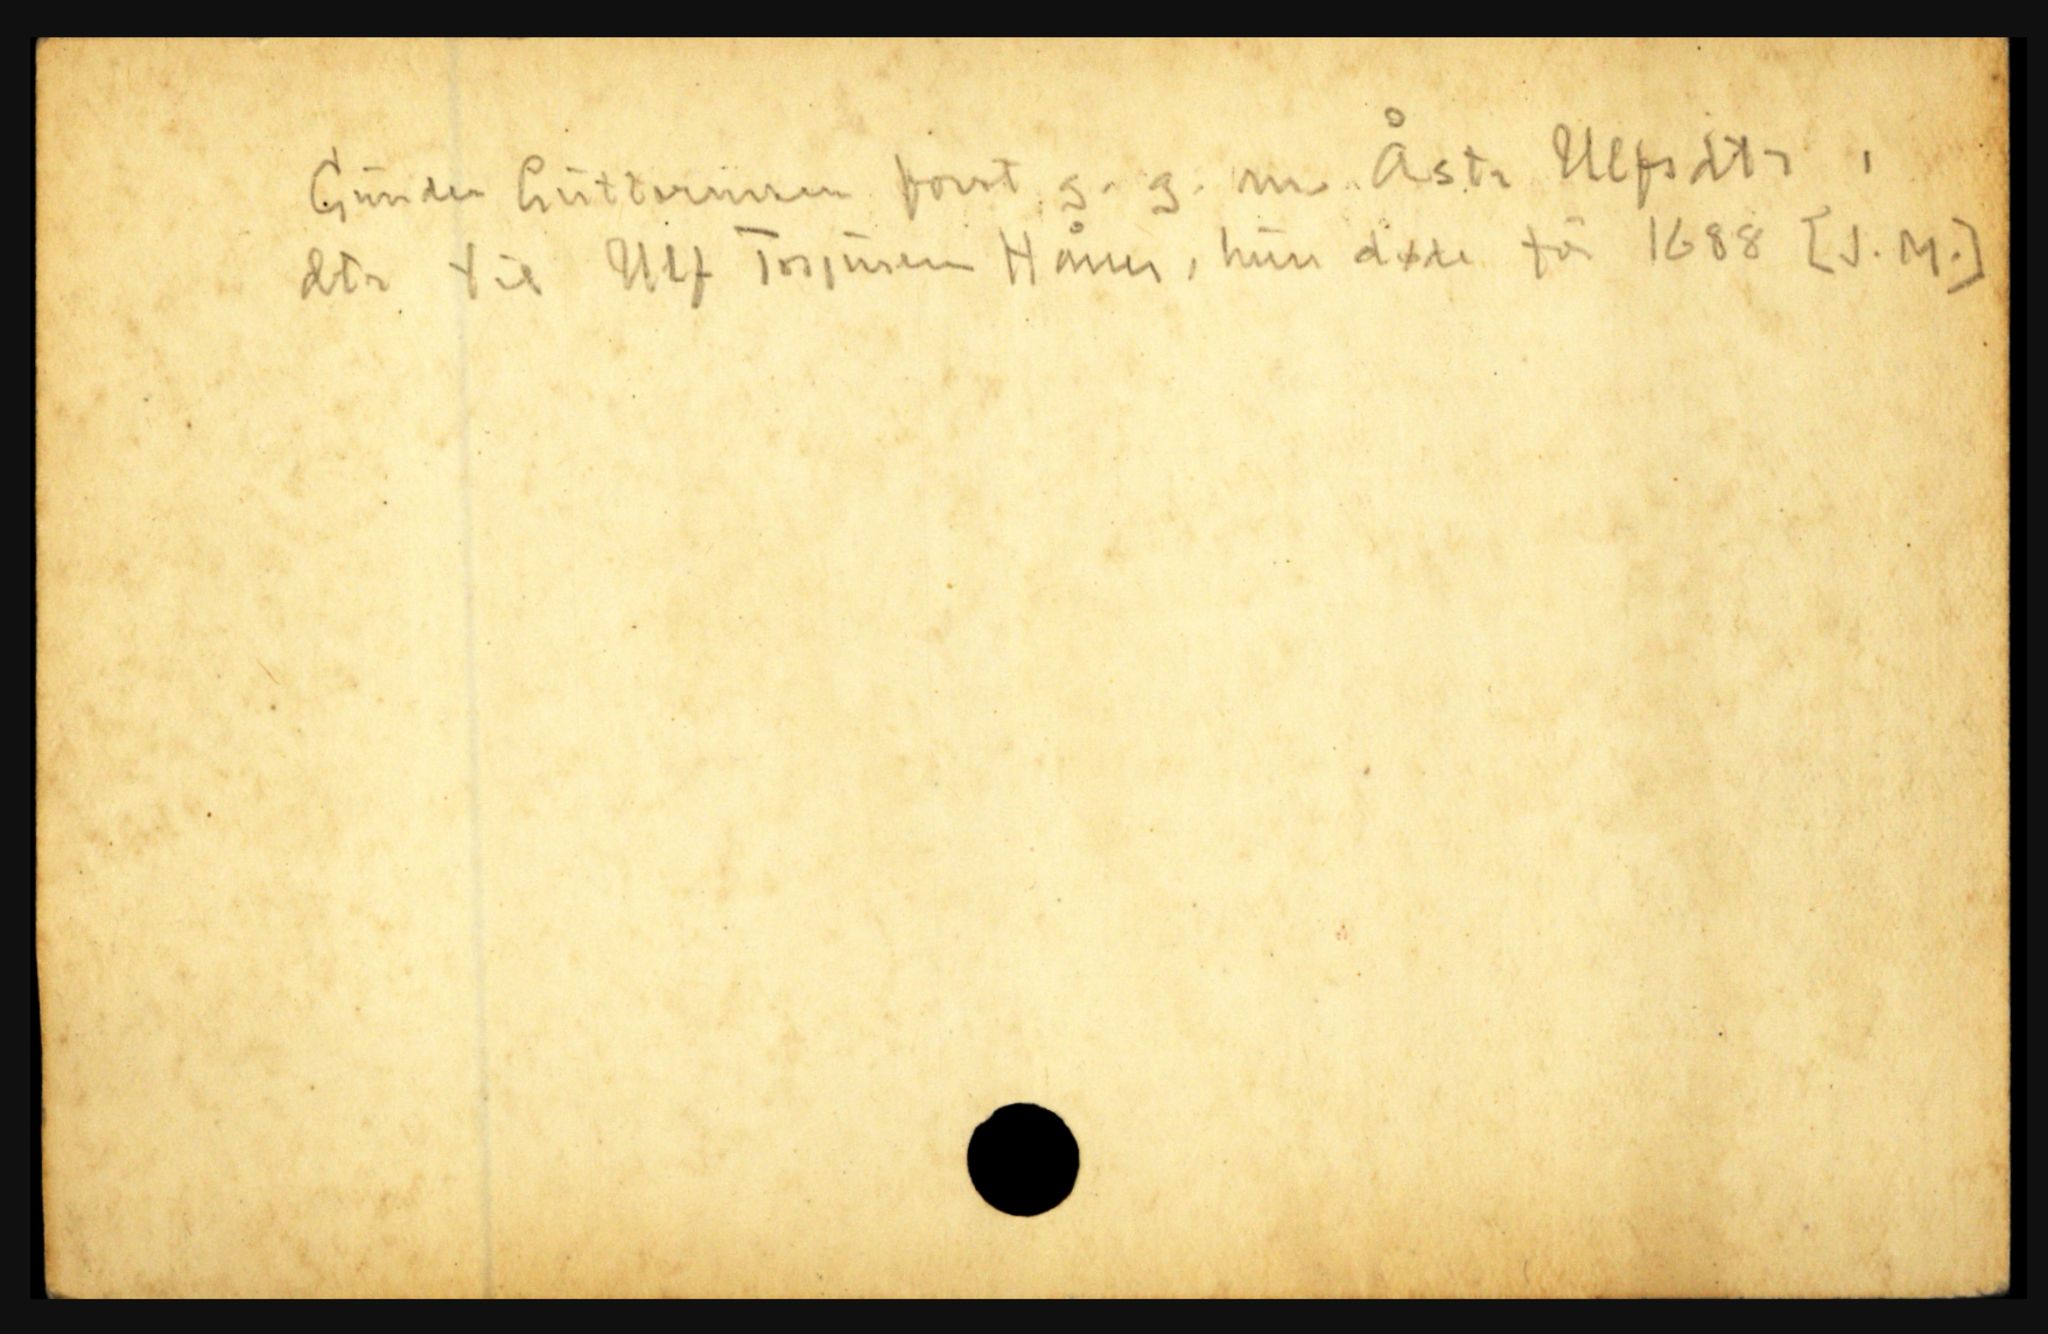 Gunder Guttormsen først g. g. m. Åste Ulfsdtr,
dtr til Ulf Torjusen Håner, hun døde før 1688 [J. M.]